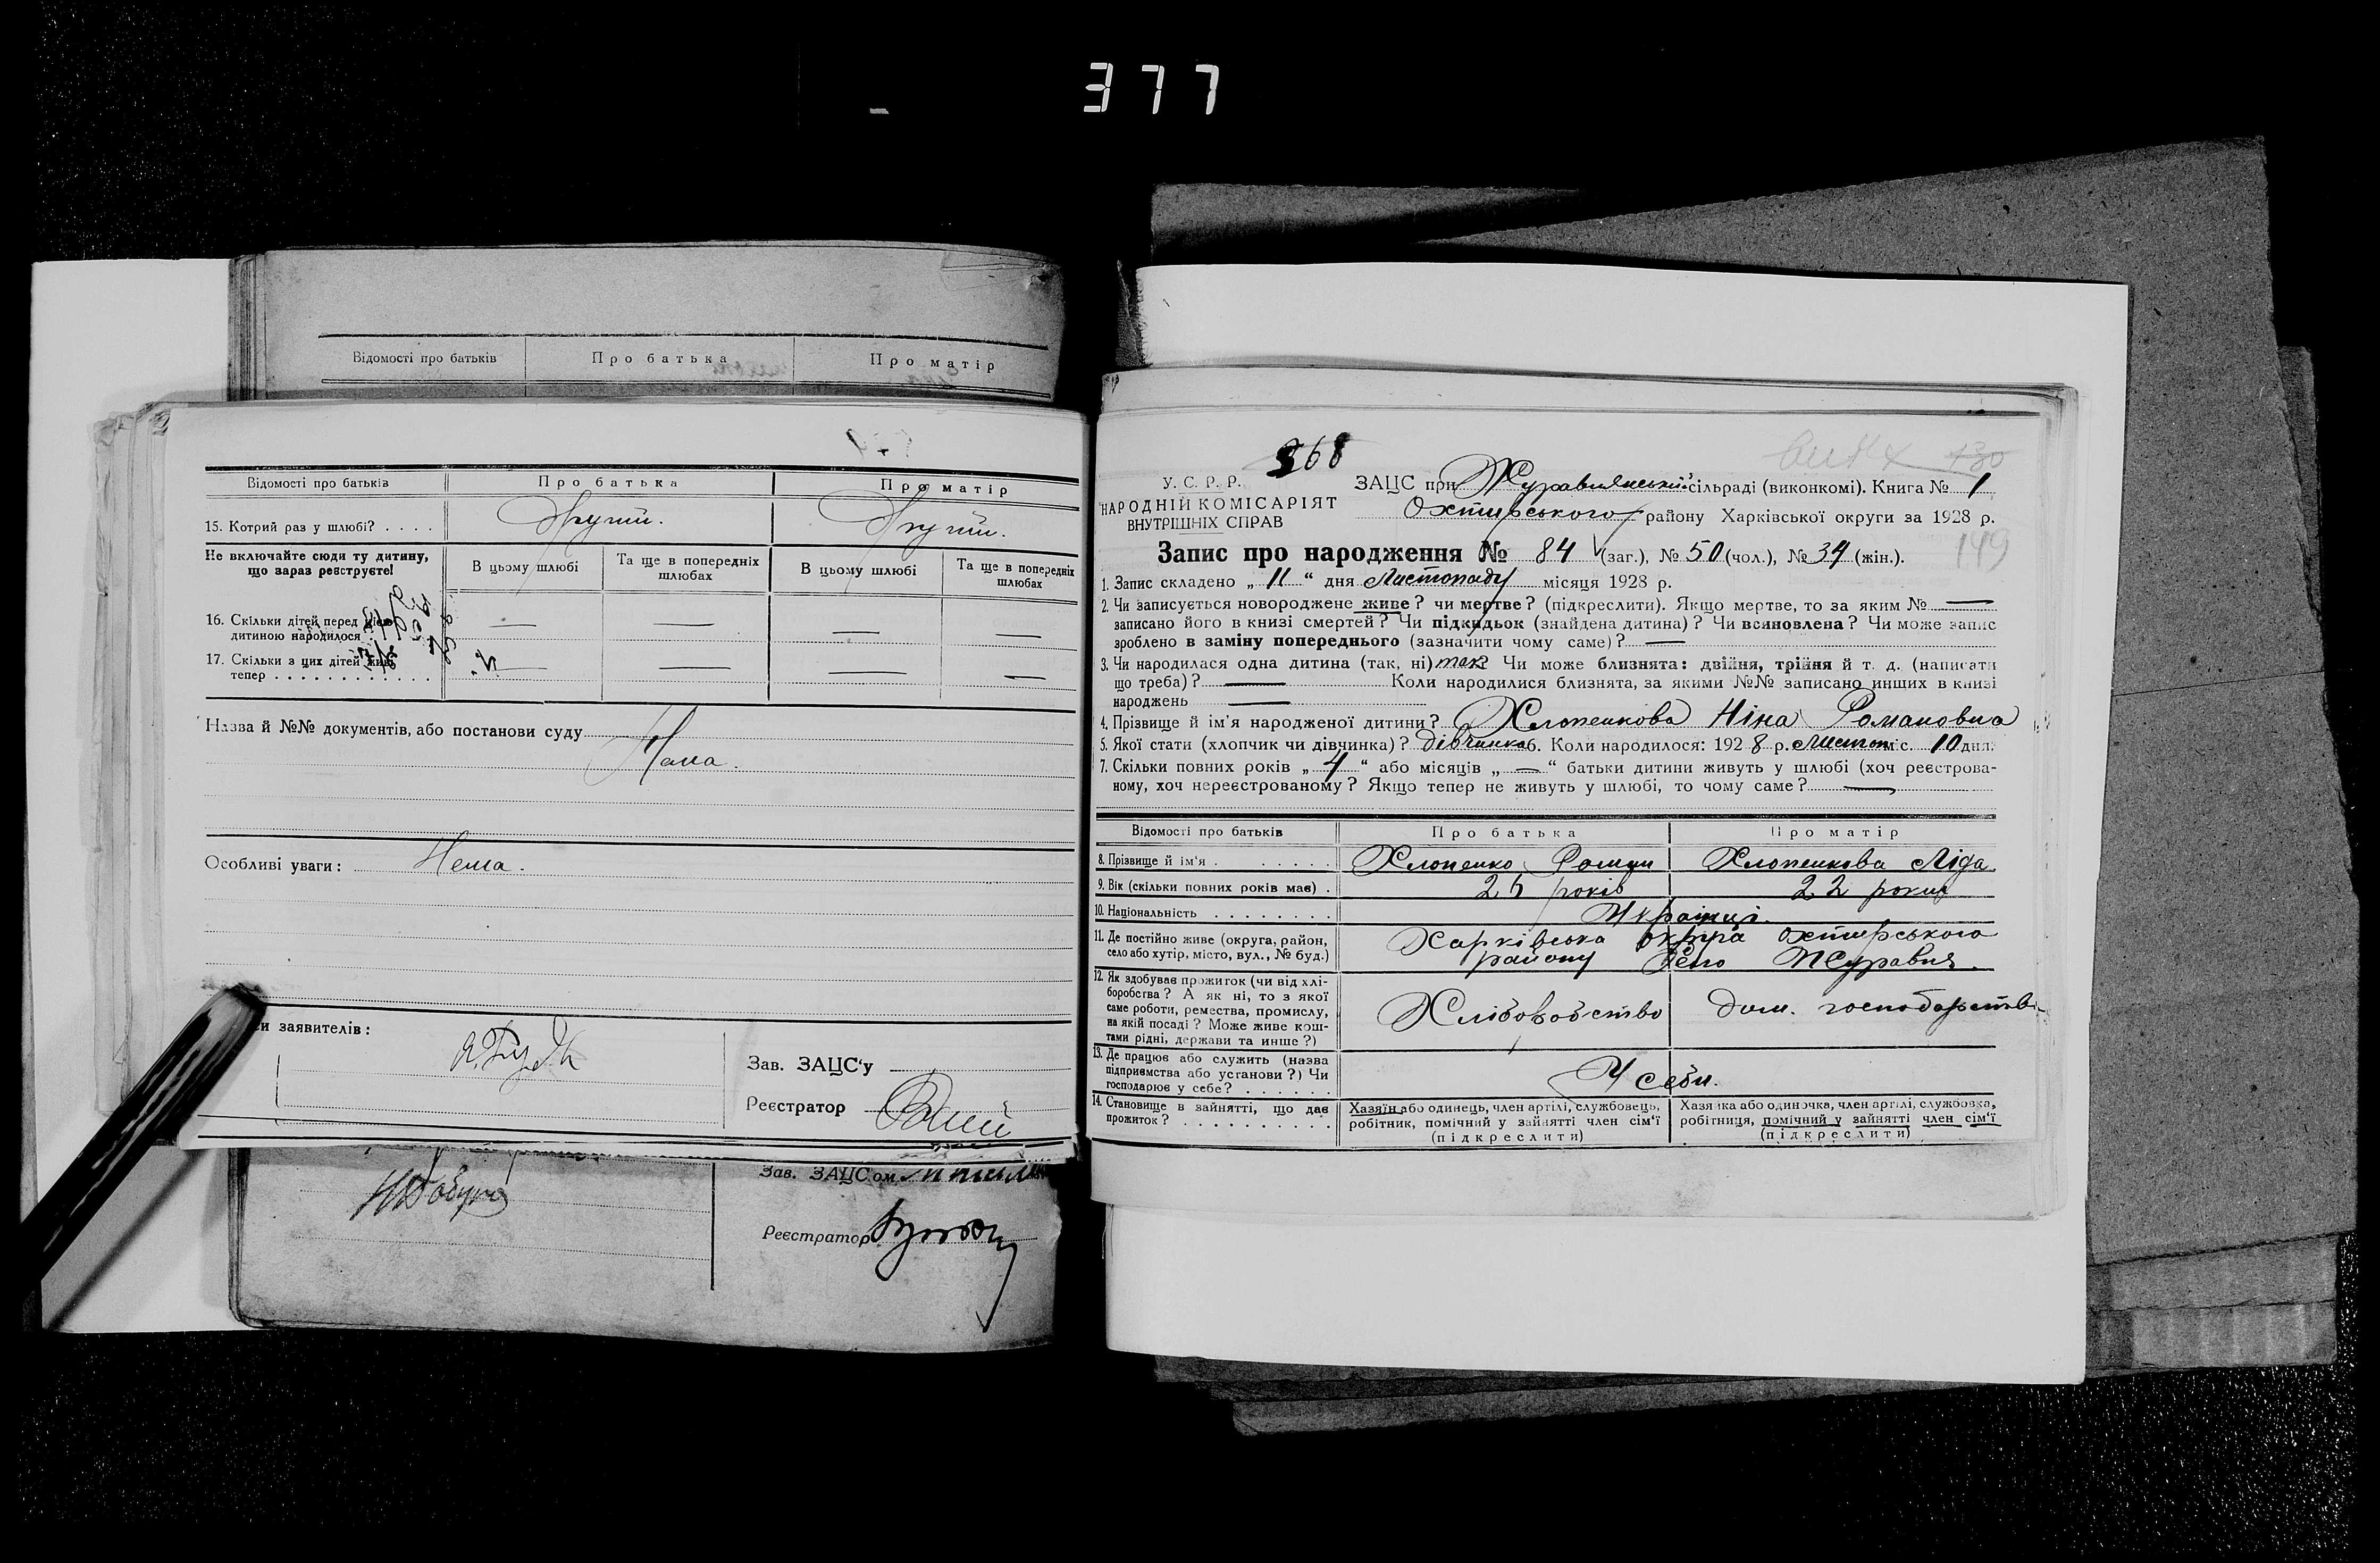 377
Відомості про батьків Про батька Про матір
Відомості про батьків Про батька Про матір
15. Котрий раз у шлюбі? Другий. Другий.
Не включайте сюди ту дитину, що зараз реєструєте!
В цьому шлюбі Та ще в попередніх шлюбах В цьому шлюбі Та ще в попередніх шлюбах
16. Скільки дітей перед цією
дитиною народилося — — — —
17. Скільки з цих дітей живе
тепер — — — —
Назва й №№ документів, або постанови суду
Нема.
Особливі уваги: Нема.
заявителів:
Зав. ЗАЦС'у
Реєстратор
Зав. ЗАЦСом
Реєстратор
368
130
149
У. С. Р. Р.
НАРОДНІЙ КОМІСАРІЯТ
ВНУТРІШНІХ СПРАВ
ЗАЦС при Журавнянський сільраді (виконкомі). Книга № 1
Охтирського району Харківської округи за 1928 р.
Запис про народження № 84 (заг.), № 50 (чол.), № 34 (жін.).
1. Запис складено „ 11 “ дня Листопаду місяця 1928 р.
2. Чи записується новороджене живе? чи мертве? (підкреслити). Якщо мертве, то за яким № —
записано його в книзі смертей? Чи підкидьок (знайдена дитина)? Чи всиновлена? Чи може запис
зроблено в заміну попереднього (зазначити чому саме)? —
3. Чи народилася одна дитина (так, ні) так Чи може близнята: двійня, трійня й т. д. (написати
що треба)? — Коли народилися близнята, за якими №№ записано инших в книзі
народжень —
4. Прізвище й ім'я народженої дитини? Хлопенкова Ніна Романовна
5. Якої стати (хлопчик чи дівчинка)? дівчинка 6. Коли народилося: 1928 р. Листоп міс. 10 дня.
7. Скільки повних років „ 4 “ або місяців „ — “ батьки дитини живуть у шлюбі (хоч реєстрова-
ному, хоч нереєстрованому? Якщо тепер не живуть у шлюбі, то чому саме? —
Відомості про батьків Про батька Про матір
8. Прізвище й ім'я Хлопенко Роман Хлопенкова Ліда.
9. Вік (скільки повних років має) 25 років 22 роки
10. Національність Українці.
11. Де постійно живе (округа, район,
село або хутір, місто, вул., № буд.)
Харківська округа охтирського
району Село Журавня.
12. Як здобуває прожиток (чи від хлі-
боробства? А як ні, то з якої
саме роботи, ремества, промислу,
на якій посаді? Може живе кош-
тами рідні, держави та инше?)
Хліборобство дом. господарство
13. Де працює або служить (назва
підприємства або установи?) Чи
господарює у себе?
У себе.
14. Становище в зайнятті, що дає
прожиток?
Хазяїн або одинець, член артілі, службовець,
робітник, помічний у зайнятті член сім'ї
(підкреслити)
Хазяйка або одиночка, член артілі, службовка,
робітниця, помічний у зайнятті член сім'ї
(підкреслити)